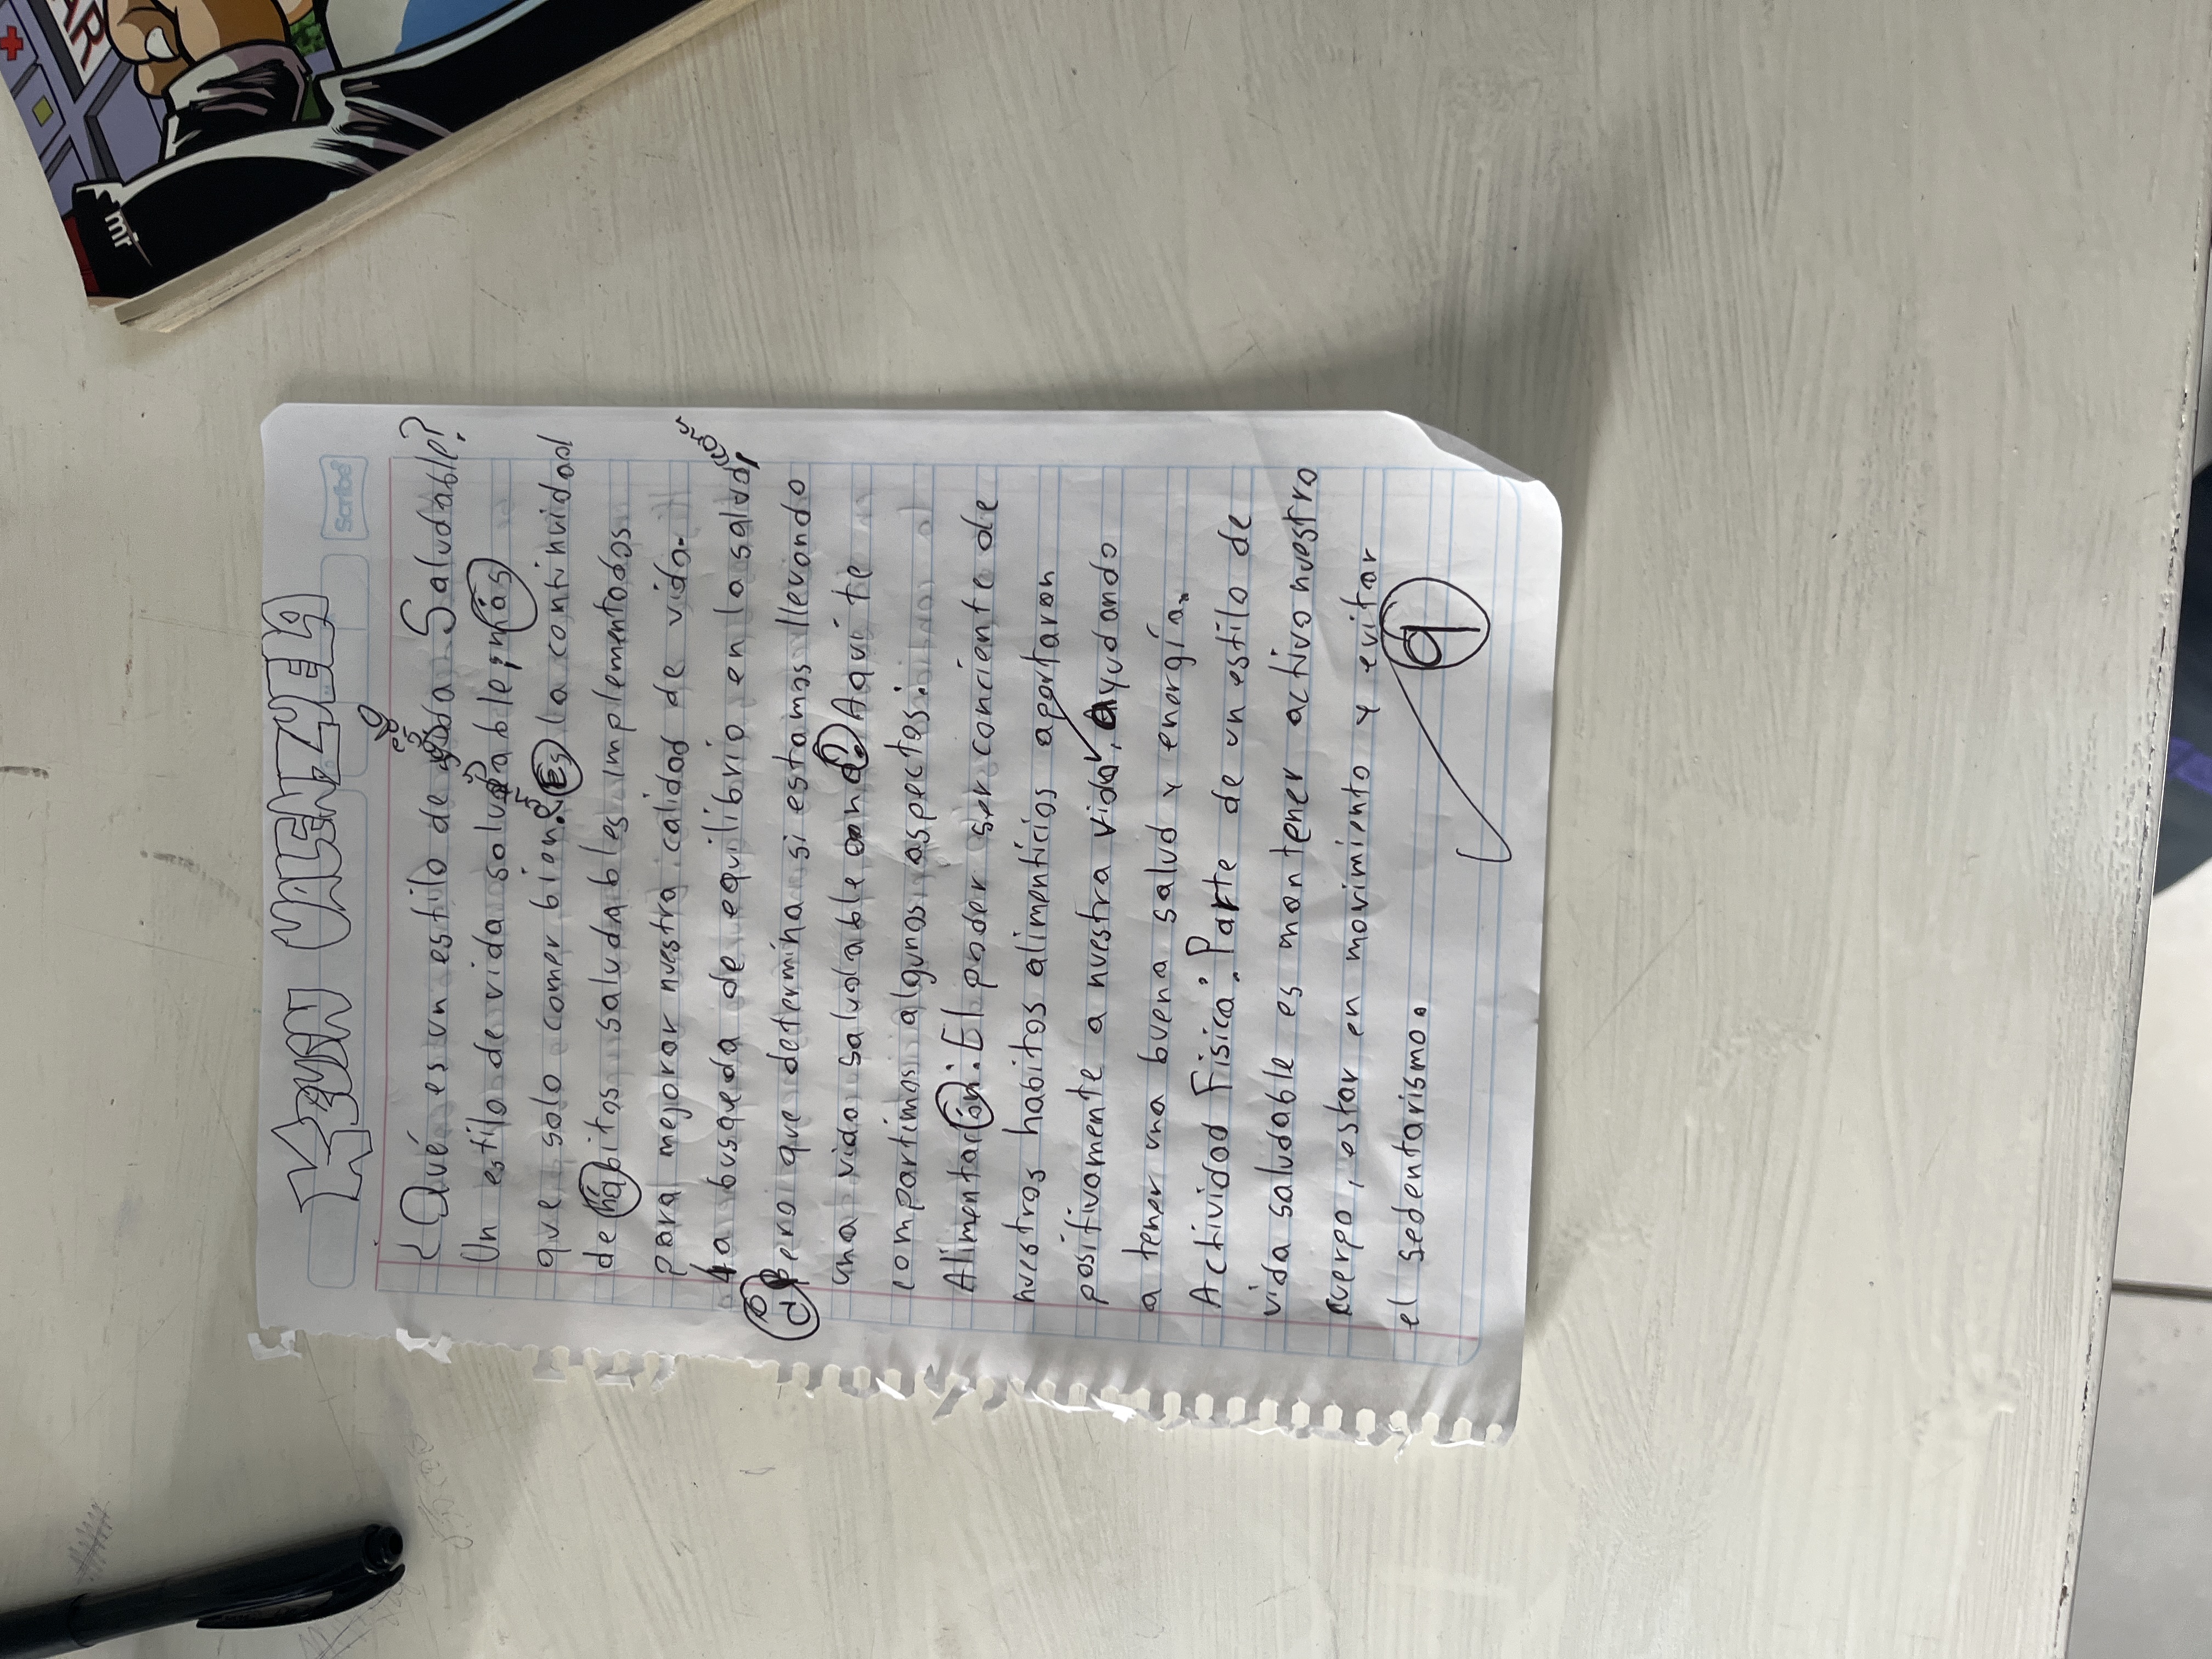 Scribe
¿Qué es un estilo de vida Saludable?
Un estilo de vida saludable; más
que solo comer bien. Es la continuidad
de hábitos saludables implementados
para mejorar nuestra calidad de vida.
La busqueda de equilibrio en la salud,
Pero que determina si estamos llevando
una vida saludable o no? Aqui te
compartimos algunos aspectos:
Alimentación: El poder ser conciente de
nuestros habitos alimenticios aportaron
positivamente a nuestra vida, ayudando
a tener una buena salud y energía.
Actividad Fisica: Parte de un estilo de
vida saludable es mantener activo nuestro
cuerpo, estar en movimiento y evitar
el sedentarismo.
9
mr
AR